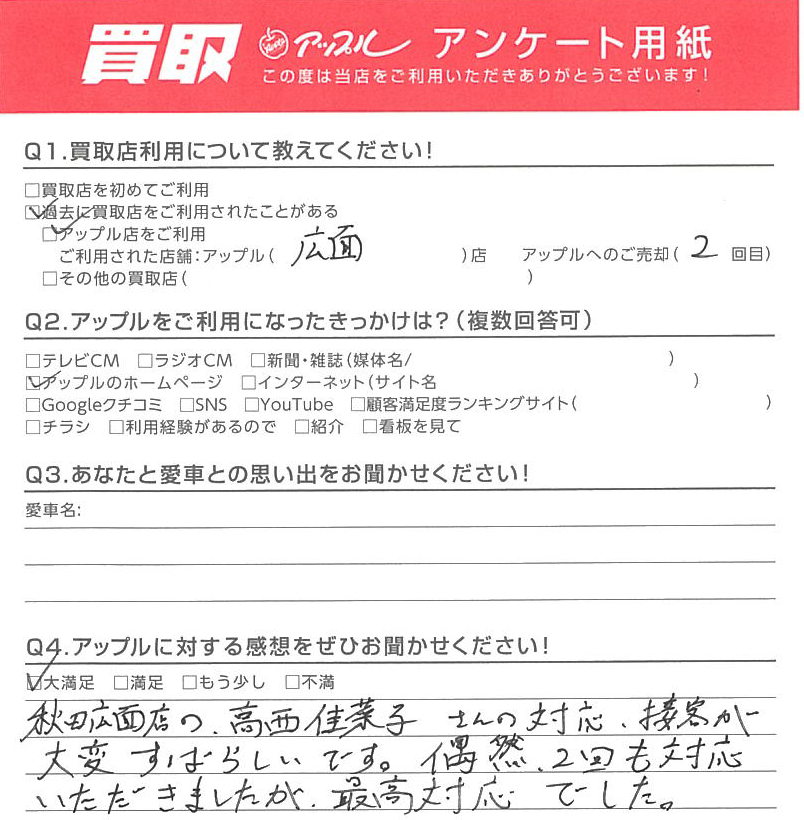 買取 アップル アンケート用紙
この度は当店をご利用いただきありがとうございます!
Q1.買取店利用について教えてください!
□買取店を初めてご利用
☑過去に買取店をご利用されたことがある
☑アップル店をご利用
ご利用された店舗:アップル( 広面 )店 アップルへのご売却( 2 回目)
□その他の買取店( )
Q2.アップルをご利用になったきっかけは?(複数回答可)
□テレビCM □ラジオCM □新聞・雑誌(媒体名/ )
☑アップルのホームページ □インターネット(サイト名 )
□Googleクチコミ □SNS □YouTube □顧客満足度ランキングサイト( )
□チラシ □利用経験があるので □紹介 □看板を見て
Q3.あなたと愛車との思い出をお聞かせください!
愛車名:
Q4.アップルに対する感想をぜひお聞かせください!
☑大満足 □満足 □もう少し □不満
秋田広面店の、高西佳菜子 さんの対応、接客が
大変すばらしいです。偶然、2回も対応
いただきましたが、最高対応でした。